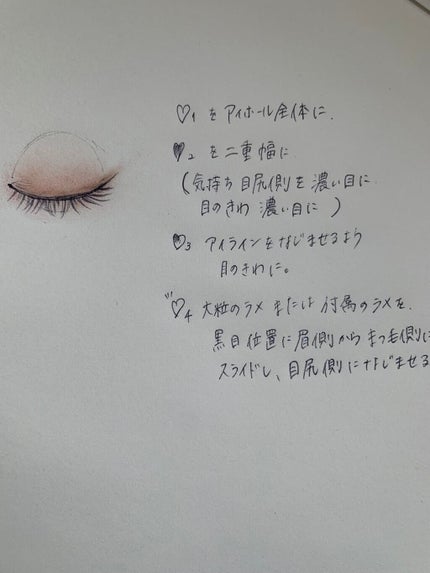 ♡1 を アイホール全体に.
♥2 を 二重幅に
(気持ち 目尻側を 濃い目に
目のきわ 濃い目に )
♥3 アイラインをなじませるよう
目のきわに。
♡4 大粒のラメ または 付属のラメを.
黒目位置に眉側から まつ毛側に
スライドし、目尻側になじませる